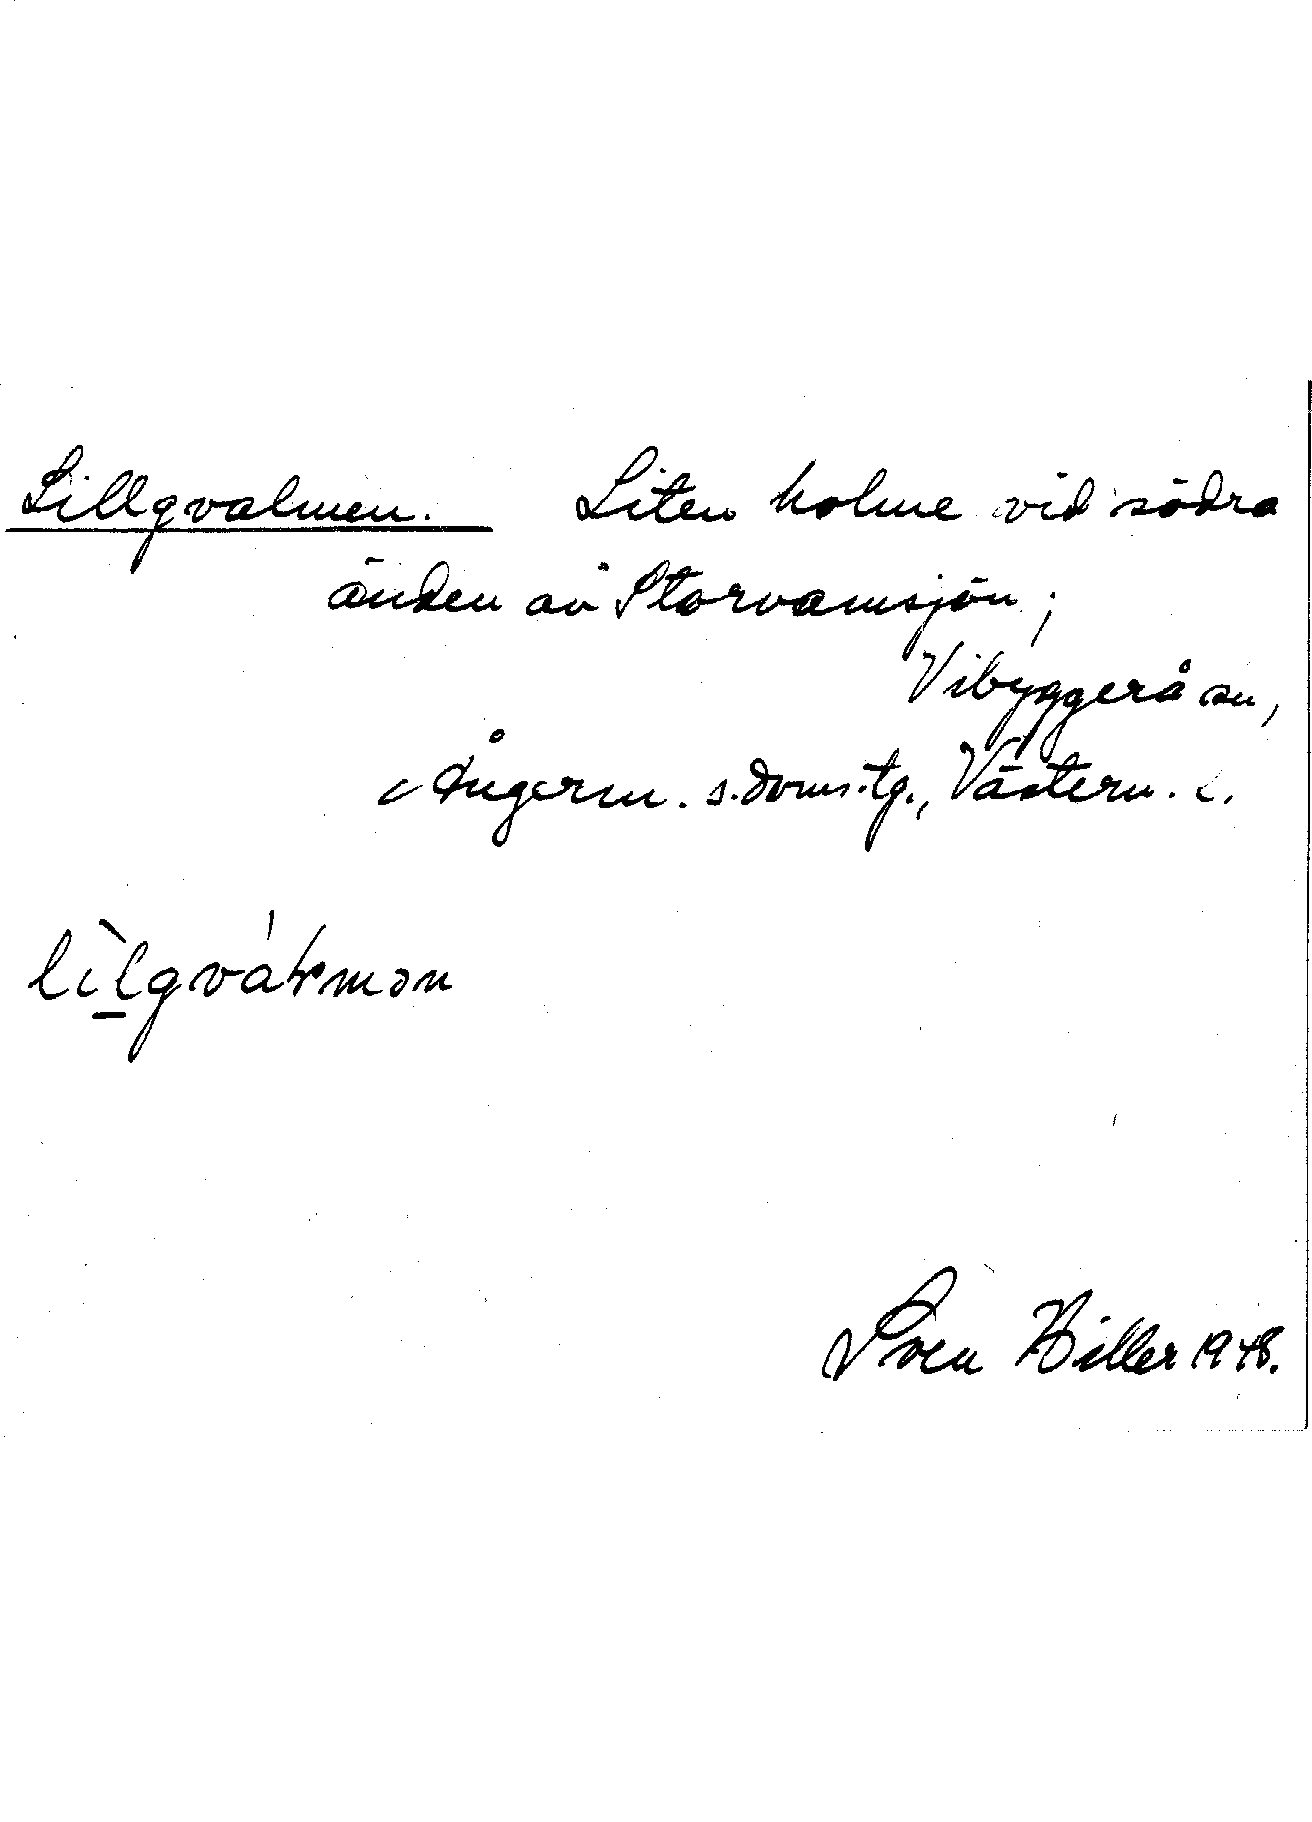 Lillgvalmen. Liten holme vid södra
änden av Storvamsjön;
Vibyggerå sn,
Ångerm. s. doms.tg., Västern. l.
lìlgvàɫmən
Sven Hiller 1948.